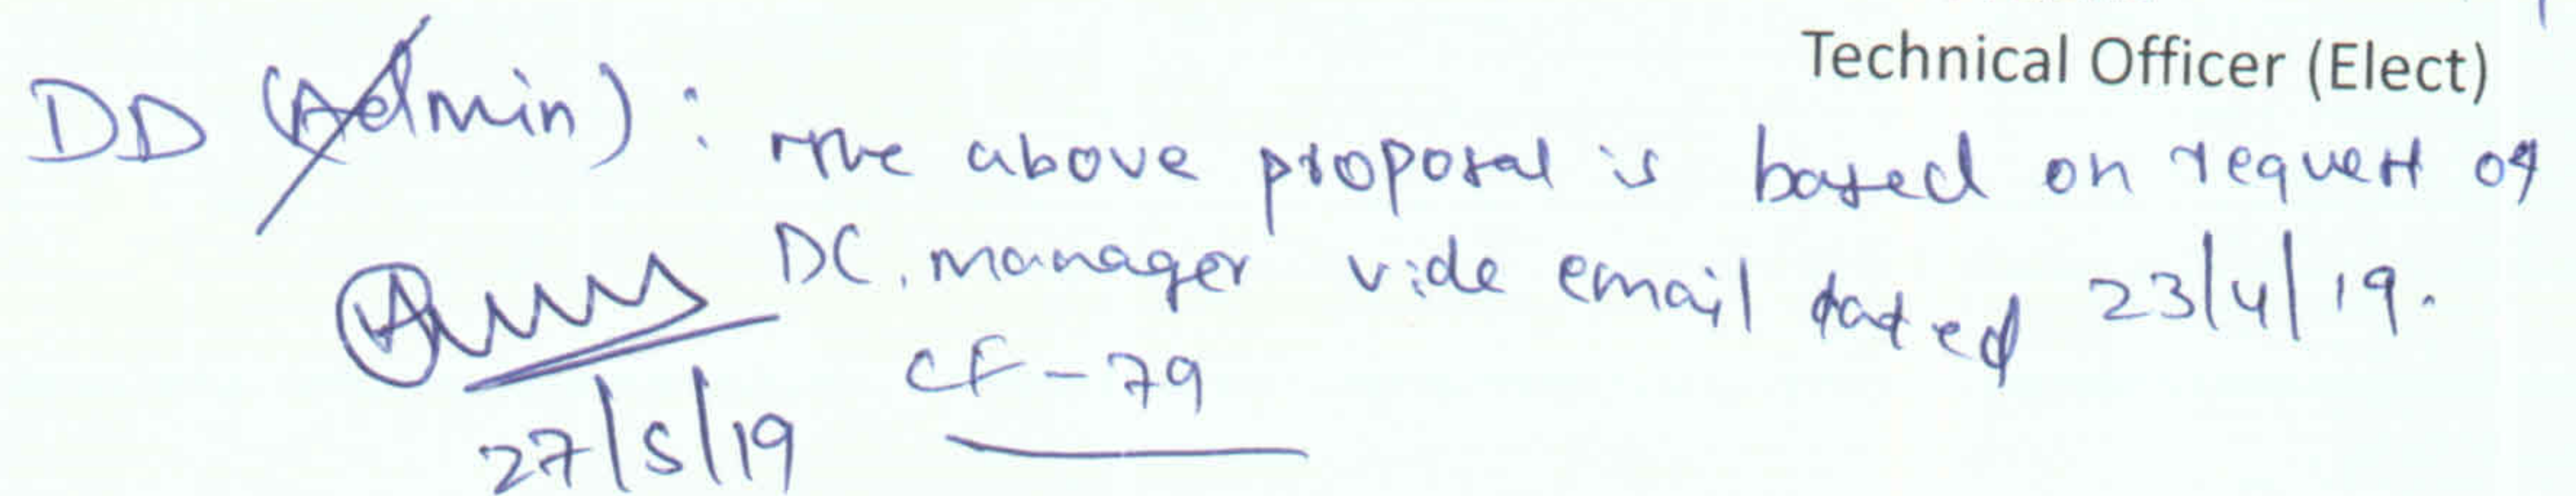 Technical Officer (Elect)
DD (Admin): The above proposal is based on request of
DC. manager vide email dated 23/4/19.
CF-79
27/5/19